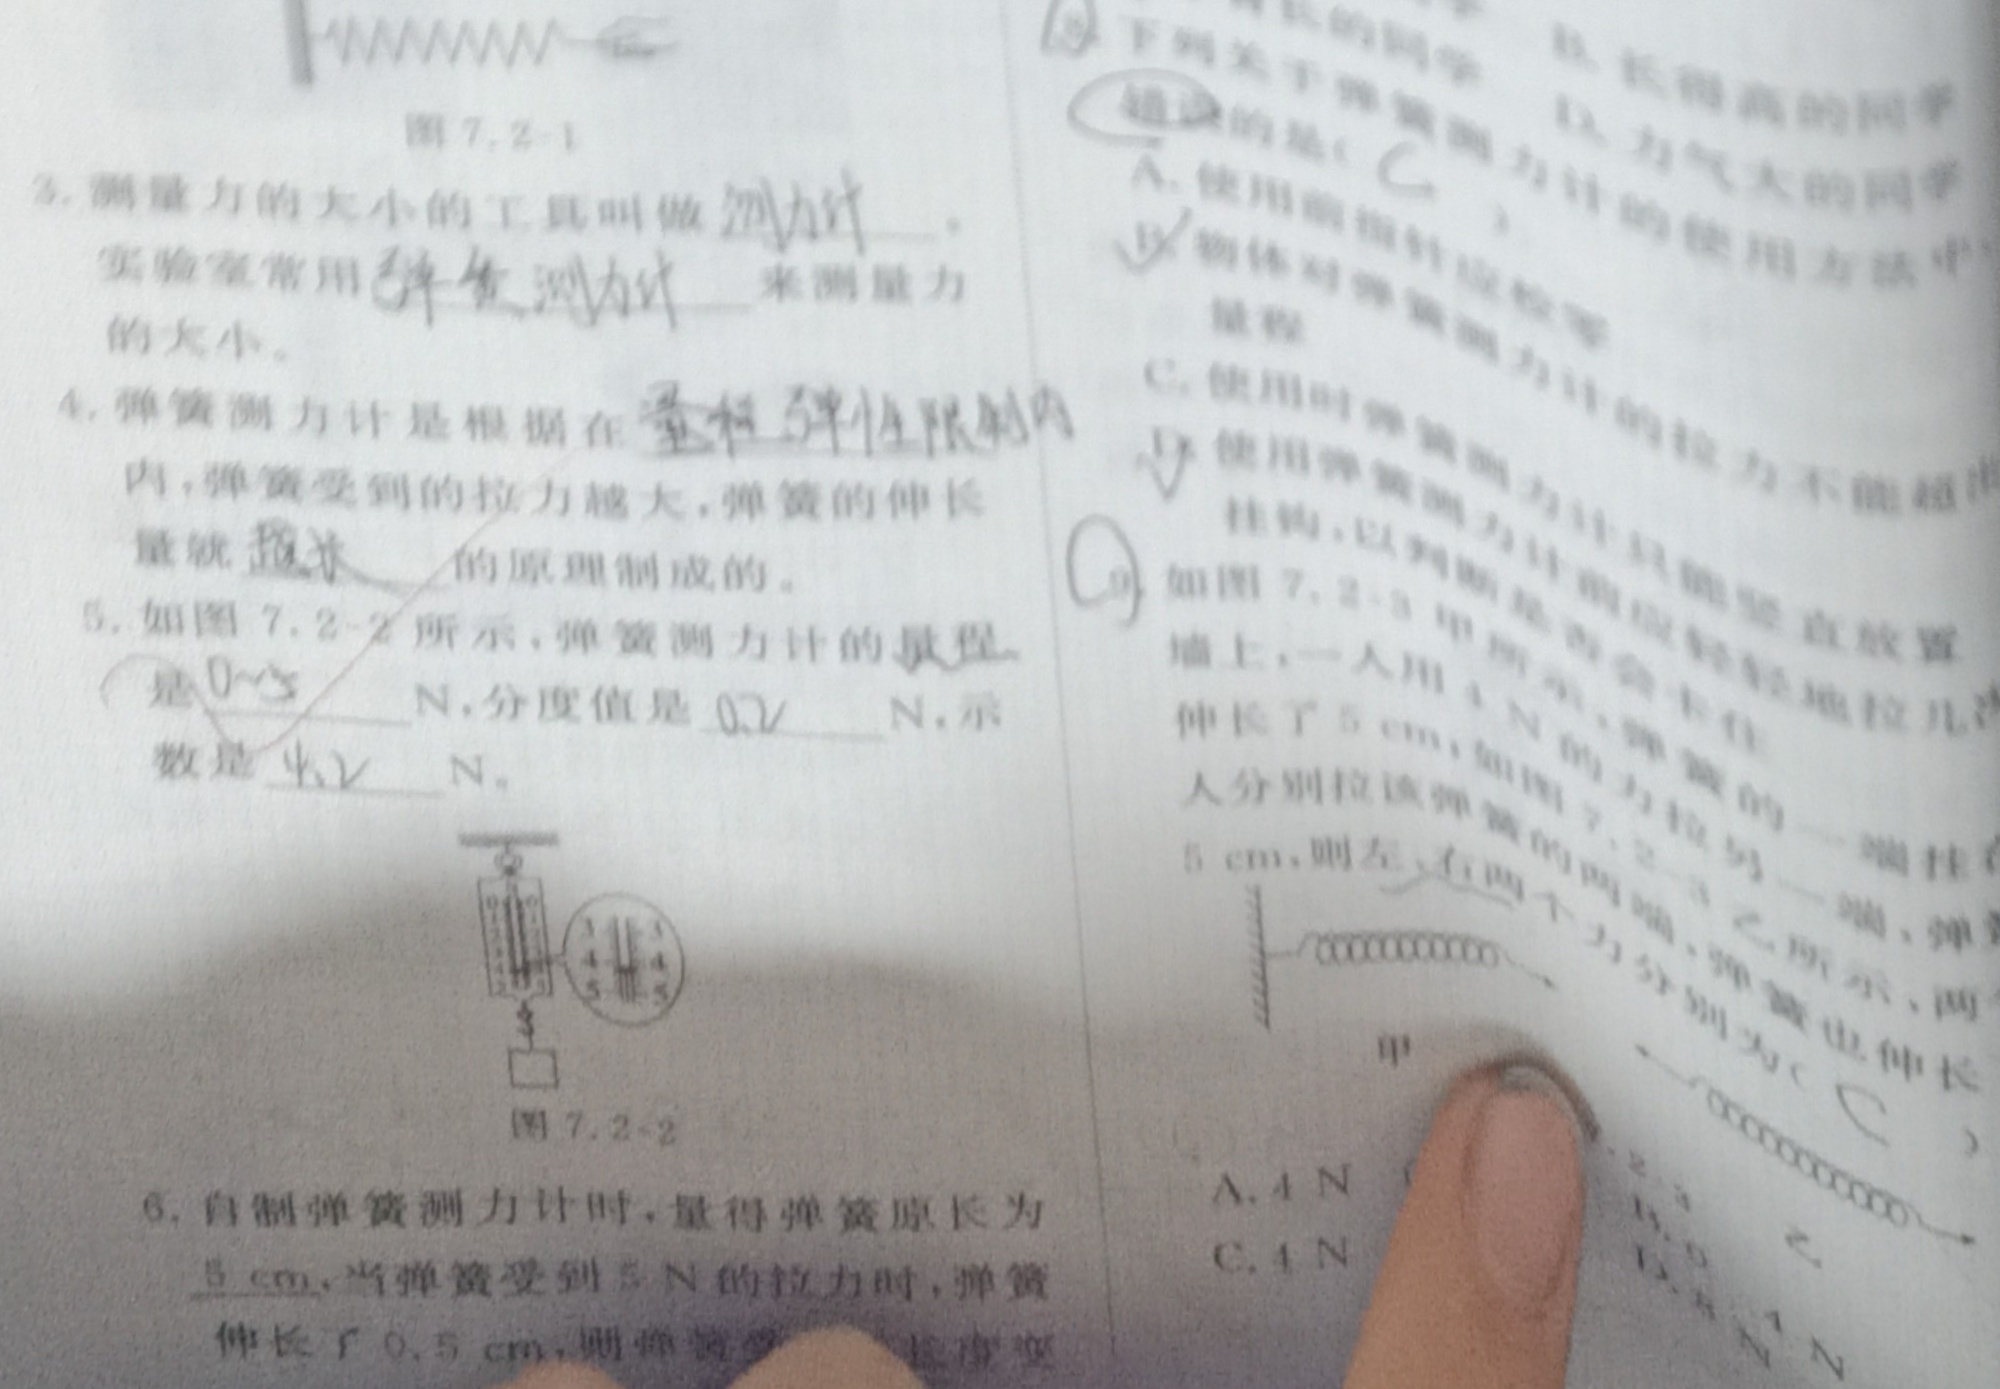 图 7.2-1
3. 测量力的大小的工具叫做 测力计 。
实验室常用 弹簧测力计 来测量力
的大小。
4. 弹簧测力计是根据在 弹性限制内
内,弹簧受到的拉力越大,弹簧的伸长
量就 越长 的原理制成的。
5. 如图 7.2-2 所示,弹簧测力计的量程
是 0~5 N,分度值是 0.2 N,示
数是 4.2 N。
3 3
4 4
5 5
图 7.2-2
6. 自制弹簧测力计时,量得弹簧原长为
5 cm,当弹簧受到 5 N 的拉力时,弹簧
伸长了 0.5 cm,则弹簧 长度变
B. 长得高的同学
长的同学 D. 力气大的同学
8. 下列关于弹簧测力计的使用方法中
错误的是( C )
A. 使用前指针应校零
B. 物体对弹簧测力计的拉力不能超出
量程
C. 使用时弹簧测力计只能竖直放置
D. 使用弹簧测力计前应轻轻地拉几次
挂钩,以判断是否会卡住
9. 如图 7.2-3 甲所示,弹簧的一端挂在
墙上,一人用 4 N 的力拉另一端,弹簧
伸长了 5 cm,如图 7.2-3 乙所示,两
人分别拉该弹簧的两端,弹簧也伸长
5 cm,则左、右两个力分别为( C )
甲
乙
A. 4 N
C. 4 N